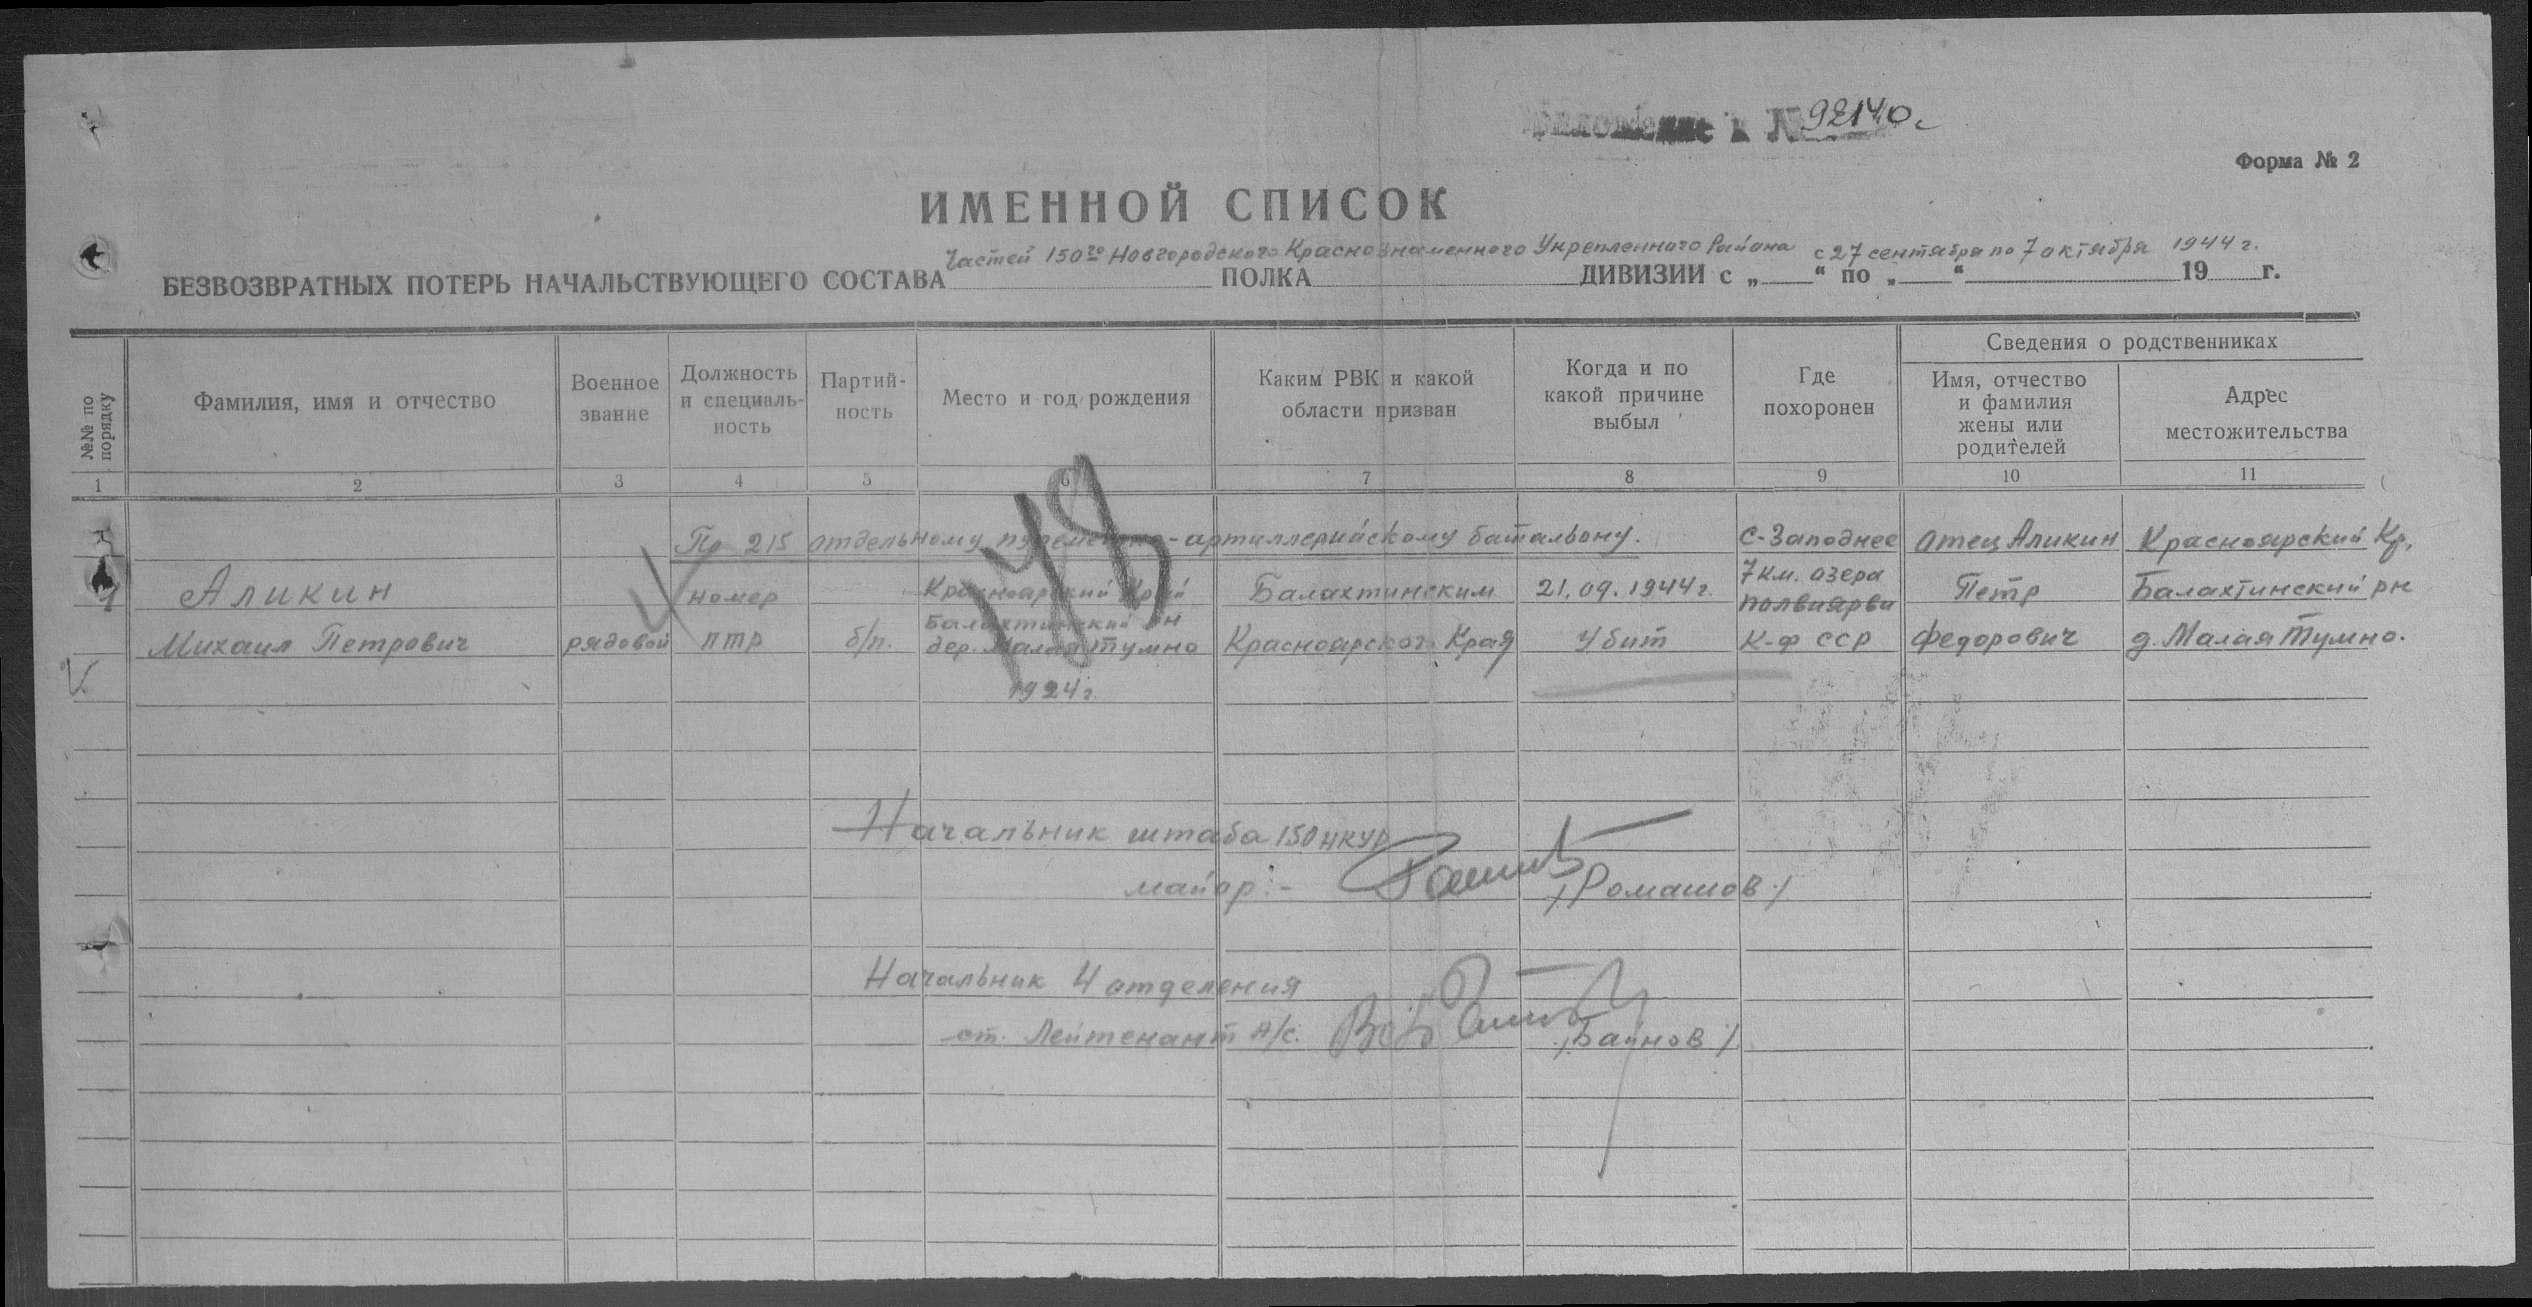 Приложение к № 92140с
Форма № 2
ИМЕННОЙ СПИСОК
Частей 150го Новгородского Краснознаменного Укрепленного Района с 27 сентября по 7 октября 1944 г.
БЕЗВОЗВРАТНЫХ ПОТЕРЬ НАЧАЛЬСТВУЮЩЕГО СОСТАВА ПОЛКА ДИВИЗИИ с „ “ по „ “ 19 г.
№№ по порядку
Фамилия, имя и отчество
Военное звание
Должность и специаль- ность
Партий- ность
Место и год рождения
Каким РВК и какой области призван
Когда и по какой причине выбыл
Где похоронен
Сведения о родственниках
Имя, отчество и фамилия жены или родителей
Адрес местожительства
1 2 3 4 5 6 7 8 9 10 11
По 215 отдельному пулеметно-артиллерийскому батальону. С-Западнее отец Аликин Красноярский Кр.
1 Аликин номер Красноярский Край Балахтинским 21.09.1944г. 7 км. озера Петр Балахтинский рн
Балахтинский рн полвиярви
Михаил Петрович рядовой птр б/п. дер. Малая Тумно Красноярского Края Убит К-Ф ССР Федорович д. Малая Тумно.
1924г.
V.
Начальник штаба 150 НКУР
майор:- /Ромашов/
Начальник 4 отделения
ст. Лейтенант А/С. /Баинов/